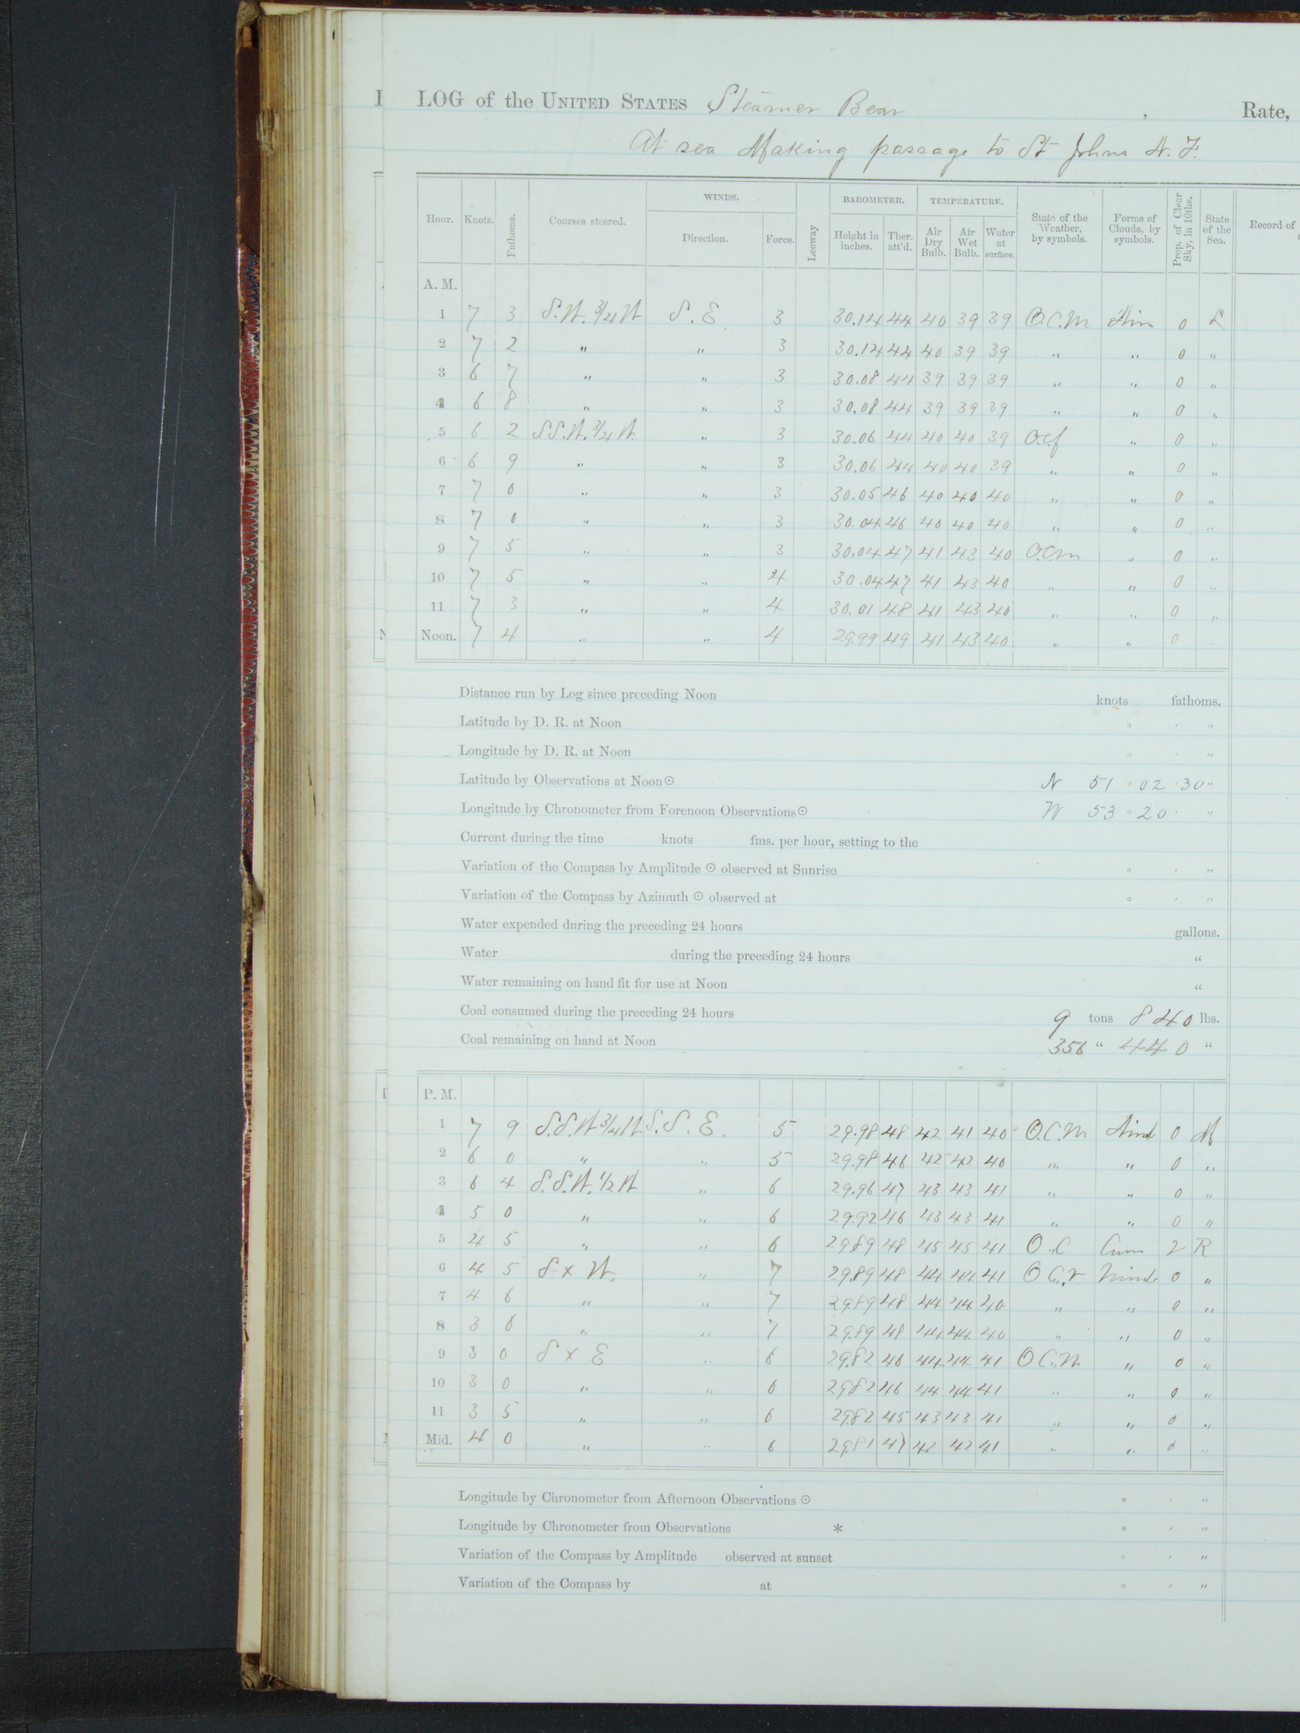 LOG of the UNITED STATES Steamer Bear , Rate,
At sea Making passage to St Johns N. F.
Hour. Knots. Fathoms. Courses steered. WINDS. Leeway BAROMETER. TEMPERATURE. State of the Weather, by symbols. Forms of Clouds, by symbols. Prop. of Clear Sky, in 10ths. State of the Sea. Record of
Direction. Force. Height in inches. Ther. att'd. Air Dry Bulb. Air Wet Bulb. Water at surface.
A. M.
1 7 3 S.W. 3/4 W S. E 3 30.14 44 40 39 39 O.C.M Nim 0 L
2 7 2 " " 3 30.14 44 40 39 39 " " 0 "
3 6 7 " " 3 30.08 44 39 39 39 " " 0 "
4 6 8 " " 3 30.08 44 39 39 39 " " 0 "
5 6 2 S.S.W. 3/4 W. " 3 30.06 44 40 40 39 O.c.f " 0 "
6 6 9 " " 3 30.06 44 40 40 39 " " 0 "
7 7 0 " " 3 30.05 46 40 40 40 " " 0 "
8 7 0 " " 3 30.04 46 40 40 40 " " 0 "
9 7 5 " " 3 30.04 47 41 43 40 O.C.m " 0 "
10 7 5 " " 4 30.04 47 41 43 40 " " 0 "
11 7 3 " " 4 30.01 48 41 43 40 " " 0 "
Noon. 7 4 " " 4 29.99 49 41 43 40 " " 0
Distance run by Log since preceding Noon knots fathoms.
Latitude by D. R. at Noon ° ' "
Longitude by D. R. at Noon ° ' "
Latitude by Observations at Noon ☉ N 51 ° 02 ' 30 "
Longitude by Chronometer from Forenoon Observations ☉ W 53 ° 20 ' "
Current during the time knots fms. per hour, setting to the
Variation of the Compass by Amplitude ☉ observed at Sunrise ° ' "
Variation of the Compass by Azimuth ☉ observed at ° ' "
Water expended during the preceding 24 hours gallons.
Water during the preceding 24 hours "
Water remaining on hand fit for use at Noon "
Coal consumed during the preceding 24 hours 9 tons 840 lbs.
Coal remaining on hand at Noon 356 " 440 "
P. M.
1 7 9 S.S.W 3/4 W S. S. E. 5 29.98 48 42 41 40 O.C.M Nimb 0 M
2 6 0 " " 5 29.98 46 42 42 40 " " 0 "
3 6 4 S.S.W. 1/2 W " 6 29.96 47 43 43 41 " " 0 "
4 5 0 " " 6 29.92 46 43 43 41 " " 0 "
5 4 5 " " 6 29.89 48 45 45 41 O.C Cum 2 R
6 4 5 S x W. " 7 29.89 48 44 44 41 O.C.r Nimb 0 "
7 4 6 " " 7 29.89 48 44 44 40 " " 0 "
8 3 6 " " 7 29.89 48 44 44 40 " " 0 "
9 3 0 S x E " 6 29.82 46 44 44 41 O.C.M. " 0 "
10 3 0 " " 6 29.82 46 44 44 41 " " 0 "
11 3 5 " " 6 29.82 45 43 43 41 " " 0 "
Mid. 4 0 " " 6 29.81 47 42 42 41 " " 0 "
Longitude by Chronometer from Afternoon Observations ☉ ° ' "
Longitude by Chronometer from Observations * ° ' "
Variation of the Compass by Amplitude observed at sunset ° ' "
Variation of the Compass by at ° ' "